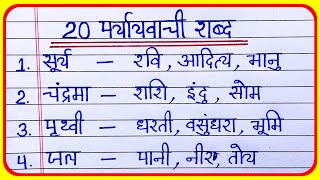 20 पर्यायवाची शब्द
1. सूर्य – रवि, आदित्य, भानु
2. चंद्रमा – शशि, इंदु, सोम
3. पृथ्वी – धरती, वसुंधरा, भूमि
4. जल – पानी, नीर, तोय